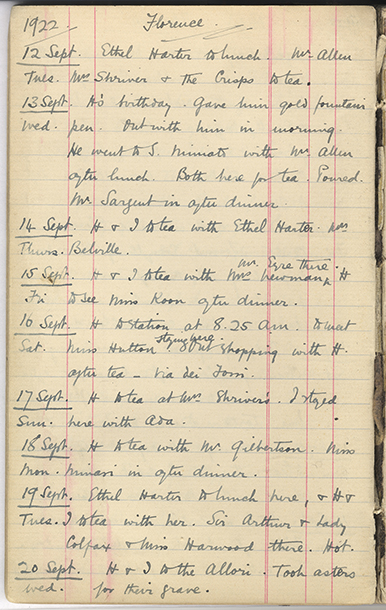 1922 Florence.
12 Sept. Ethel Harter to lunch. Mr. Allen
Tues. Mrs Shriver & the Crisps to tea.
13 Sept. H's birthday. Gave him gold fountain
Wed. pen. Out with him in morning.
He went to S. Miniato with Mr. Allen
after lunch. Both here for tea. Poured.
Mr. Sargent in after dinner.
14 Sept. H & I to tea with Ethel Harter. Mrs
Thurs. Belville.
Mr. Eyre there.
15 Sept. H & I to tea with Mrs Newman. H
Fri to see Miss Koon after dinner.
16 Sept. H to station at 8.25 am. to meet
staying here.
Sat. Miss Hutton. Out shopping with H.
after tea – Via dei Fossi.
17 Sept. H to tea at Mrs Shriver's. I stayed
Sun. here with Ada.
18 Sept. H to tea with Mr. Gilbertson. Miss
Mon. in after dinner.
19 Sept. Ethel Harter to lunch here, & H &
Tues. I to tea with her. Sir Arthur & Lady
Colfax & Miss Harwood there. Hot.
20 Sept. H & I to the Allori. Took asters
Wed. for their grave.